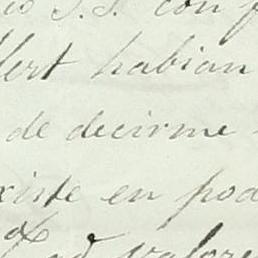 S. S. con
habian
de decirme
existe en pod
valore